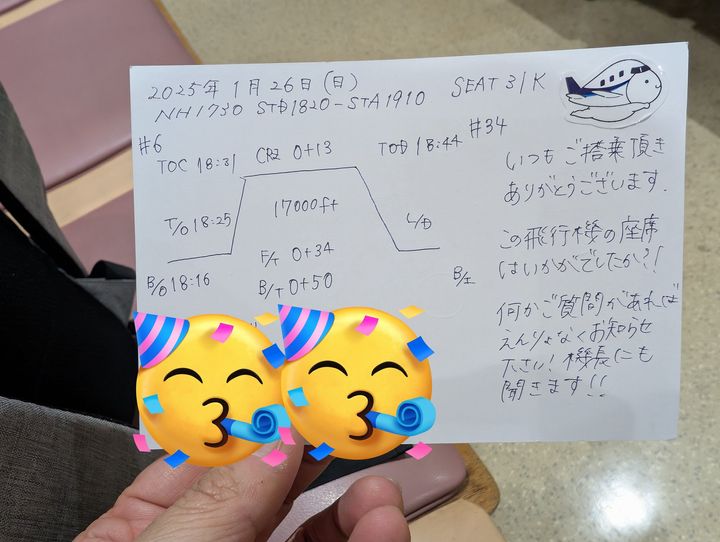 2025年 1月 26日 (日)
NH1730 STD1820-STA1910
SEAT 31K
#6
TOC 18:31
CRZ 0+13
TOD 18:44
#34
T/O 18:25
17000ft
L/D
F/T 0+34
B/O 18:16
B/T 0+50
B/I
いつもご搭乗頂き
ありがとうございます.
この飛行機の座席
はいかがでしたか?!
何かご質問があれば
えんりょなくお知らせ
下さい! 機長にも
聞きます!!